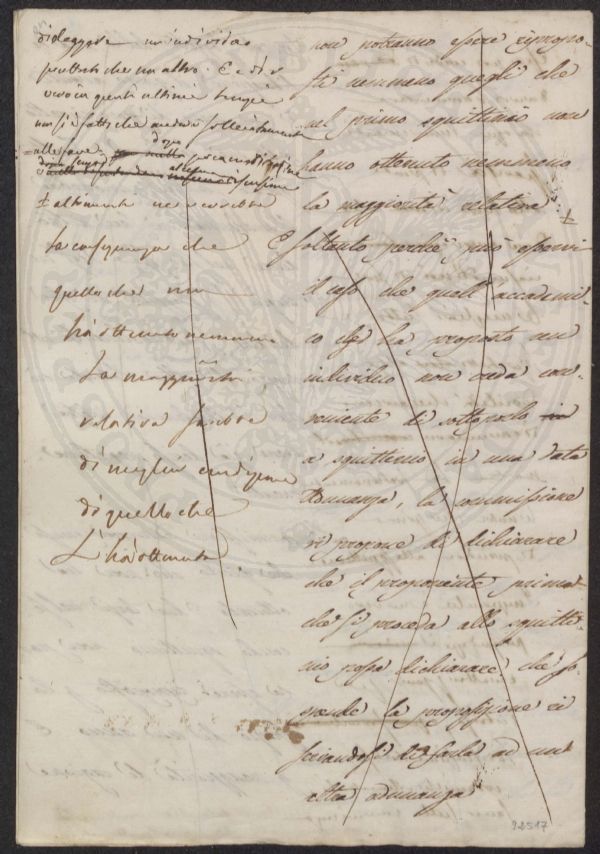 di leggere un individuo
piuttosto che un altro. E ed
in questi ultimi tempi
non si è fatto che andar sollecitamente
alle fave. dopo
± altrimenti ne verrebbe
la conseguenza che
quello che non
ha ottenuto nemmeno
la maggiorità
relativa sarebbe
di meglior condizione
di quello che
l'ha ottenuta
non potranno essere ripropo-
sti nemmeno quegli che
nel primo squittinio non
hanno ottenuto nemmeno
la maggiorità relativa ±
E soltanto perchè può esservi
il caso che quell'accademi-
co che ha proposto un
individuo non creda con-
veniente di sottoporlo
a squittinio in una data
Adunanza, la commissione
vi propone di dichiarare
che il proponente prima
che si proceda allo squitti-
nio possa dichiarare che so-
spende la proposizione ri
serbandosi di farla ad un
altra adunanza
92517